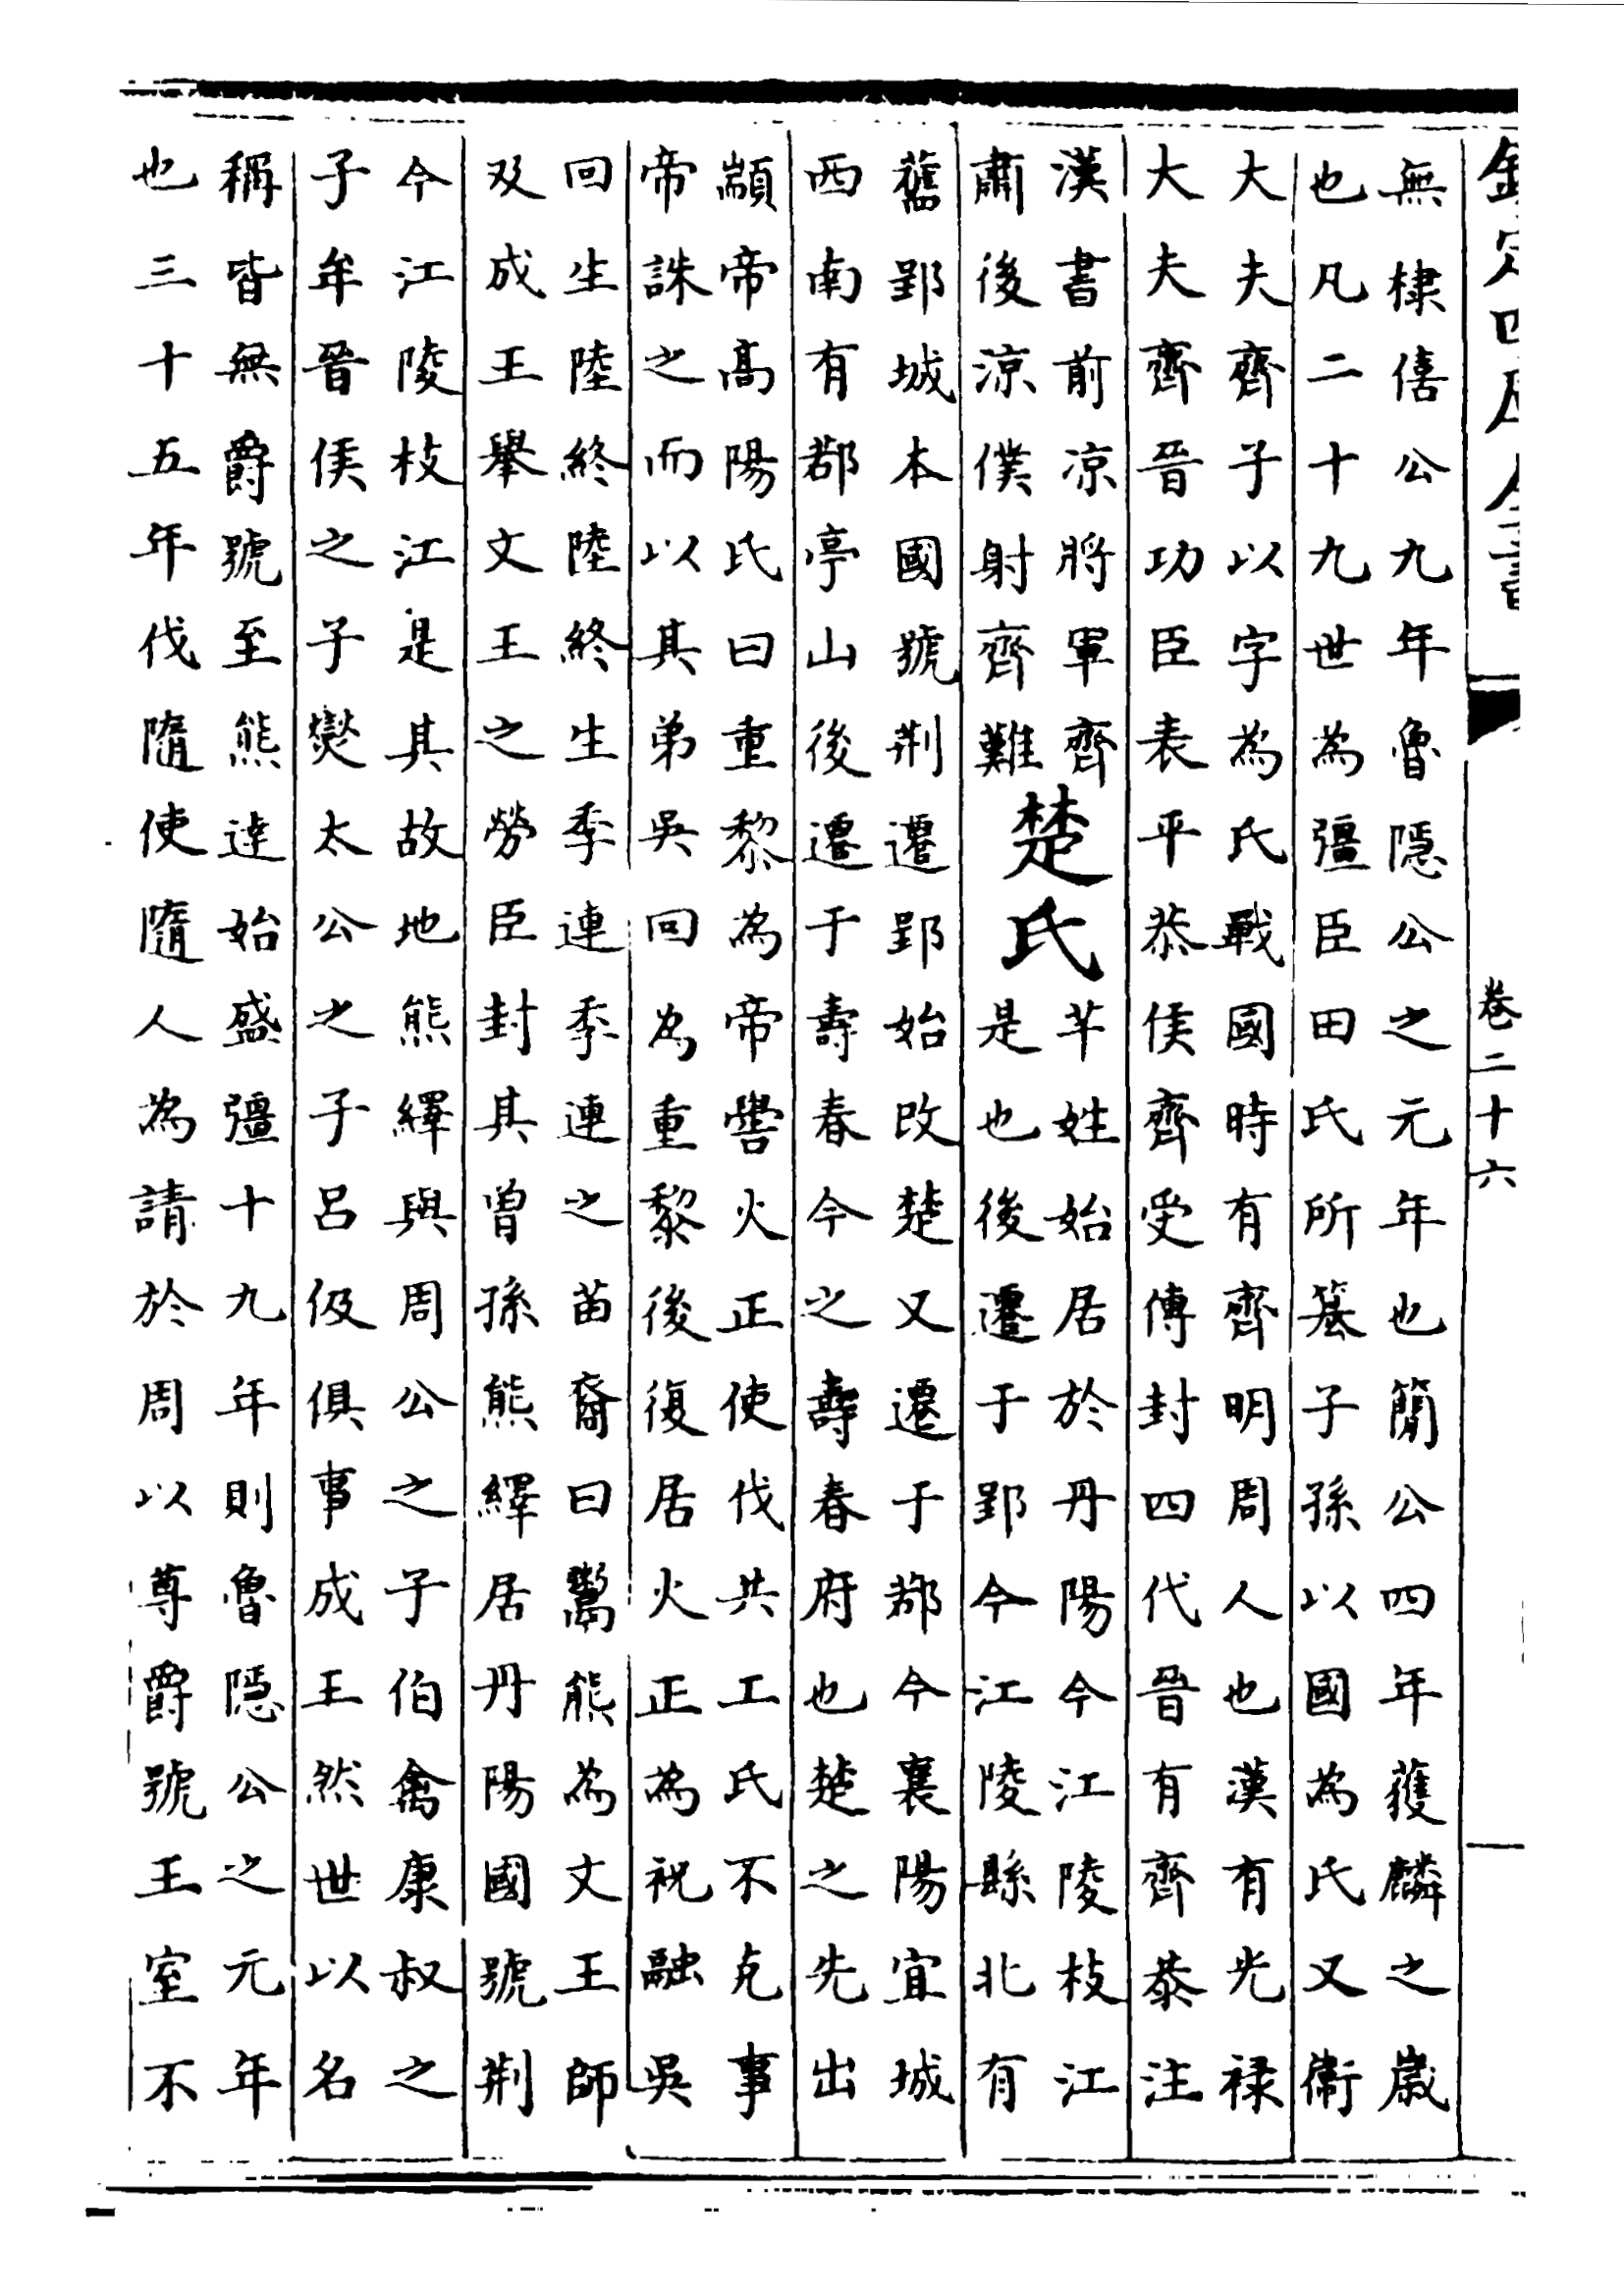 欽定四庫全書
卷二十六
無棣僖公九年魯隱公之元年也簡公四年獲麟之歳
也凡二十九世為彊臣田氏所簒子孫以國為氏又衛
大夫齊子以字為氏戰國時有齊明周人也漢有光禄
大夫齊晉功臣表平恭侯齊受傳封四代晉有齊恭注
漢書前凉將軍齊
肅後涼僕射齊難
楚氏
芊姓始居於丹陽今江陵枝江
是也後遷于郢今江陵縣北有
舊郢城本國號荆遷郢始改楚又遷于鄀今襄陽宜城
西南有鄀亭山後遷于壽春今之壽春府也楚之先出
顓帝髙陽氏曰重黎為帝嚳火正使伐共工氏不克事
帝誅之而以其弟吳回為重黎後復居火正為祝融吳
回生陸終陸終生季連季連之苗裔曰鬻熊為文王師
及成王舉文王之勞臣封其曾孫熊繹居丹陽國號荆
今江陵枝江是其故地熊繹與周公之子伯禽康叔之
子牟晉侯之子燮太公之子呂伋俱事成王然世以名
稱皆無爵號至熊達始盛彊十九年則魯隱公之元年
也三十五年伐隨使隨人為請於周以尊爵號王室不